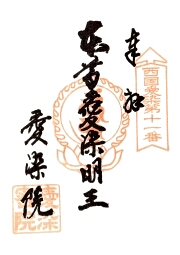 奉拝
西国愛染第十一番
本尊愛染明王
愛染院